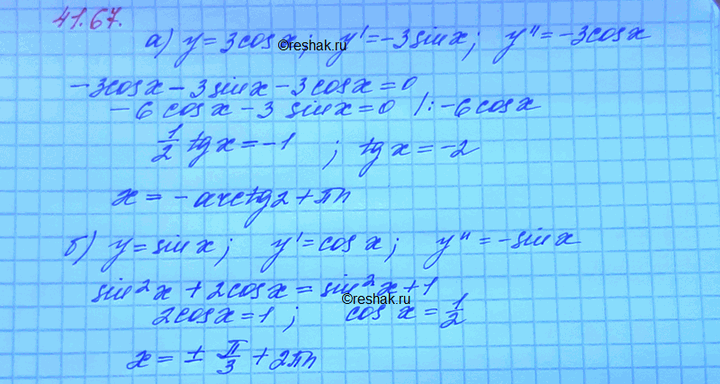 41.67.
а) y = 3cos x; y' = -3sin x; y'' = -3cos x
©reshak.ru
-3cos x - 3sin x - 3cos x = 0
-6 cos x - 3 sin x = 0 /: -6cos x
1/2 tg x = -1 ; tg x = -2
x = -arctg 2 + πn
б) y = sin x; y' = cos x; y'' = -sin x
sin²x + 2cos x = sin²x + 1
©reshak.ru
2cos x = 1 ; cos x = 1/2
x = ± π/3 + 2πn